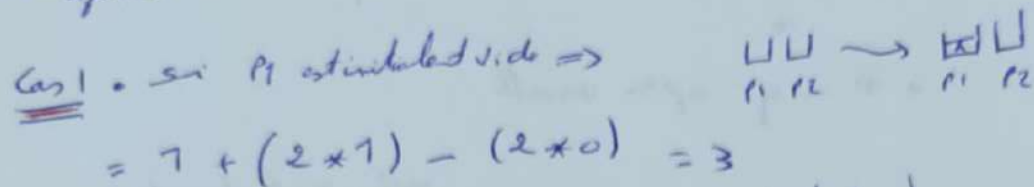 Cas 1 • si P1 est initialement vide =>
P1 P2 P1 P2
= 1 + (2*1) - (2*0) = 3